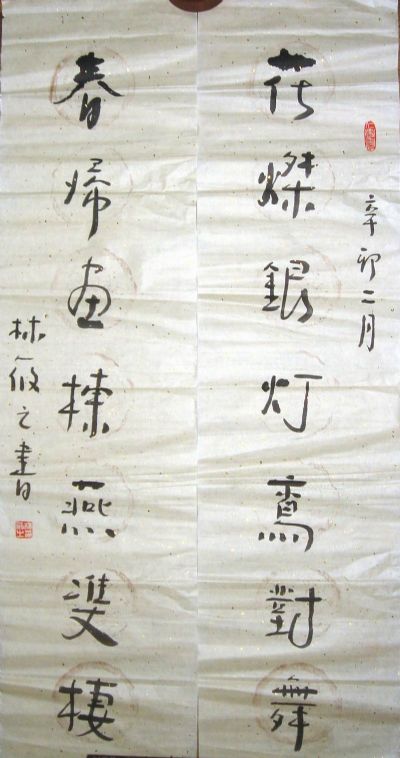 辛卯二月
花燦銀灯鸾對舞
春帰画棟燕雙棲
林筱之書